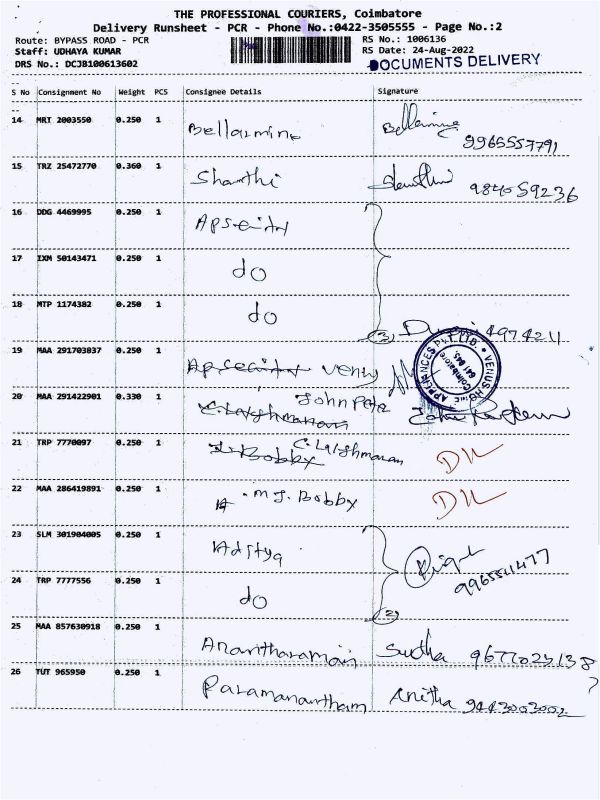 THE PROFESSIONAL COURIERS, Coimbatore
Delivery Runsheet - PCR - Phone No.:0422-3505555 - Page No.:2
Route: BYPASS ROAD - PCR
RS No.: 1006136
Staff: UDHAYA KUMAR
RS Date: 24-Aug-2022
DRS No.: DCJB100613602
DOCUMENTS DELIVERY
S No Consignment No Weight PCS Consignee Details Signature
14 MRT 2003550 0.250 1 Bellarmine Bellarmine
9965557791
15 TRZ 25472770 0.360 1 Shanthi Shanthi 984059236
16 DDG 4469995 0.250 1
17 IXM 50143471 0.250 1 do
18 MTP 1174382 0.250 1 do
(3) 4974211
19 MAA 291703837 0.250 1 Venus
VENUS HOME APPLIANCES PVT. LTD.
Coimbatore
641 045
20 MAA 291422901 0.330 1 C. Lakshmanan John Peter
21 TRP 7770097 0.250 1 Bobby C. Lakshmanan DIL
22 MAA 286419891 0.250 1 M J. Bobby DIL
23 SLM 301904005 0.250 1 Aditya
9965541477
24 TRP 7777556 0.250 1 do
(2)
25 MAA 857630918 0.250 1 Anantharaman Sudha 9677023138
26 TUT 965950 0.250 1 Paramanantham Anitha 9443003002